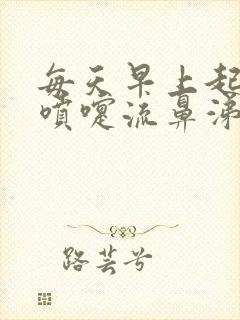 每天早上起
喷嚏流鼻涕
路芸兮